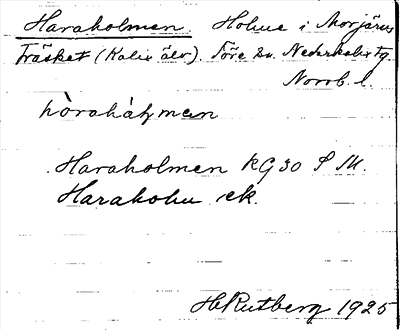 Haraholmen Holme i Morjärvs
Träsket (Kalix älv). Töre Sn. Nederkalix Tg.
Norrb. l.
hòrahàɫmen
Haraholmen KG 30 S
Haraholm ek.
H Rutberg 1925